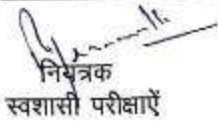 नियंत्रक
स्वशासी परीक्षाऐं